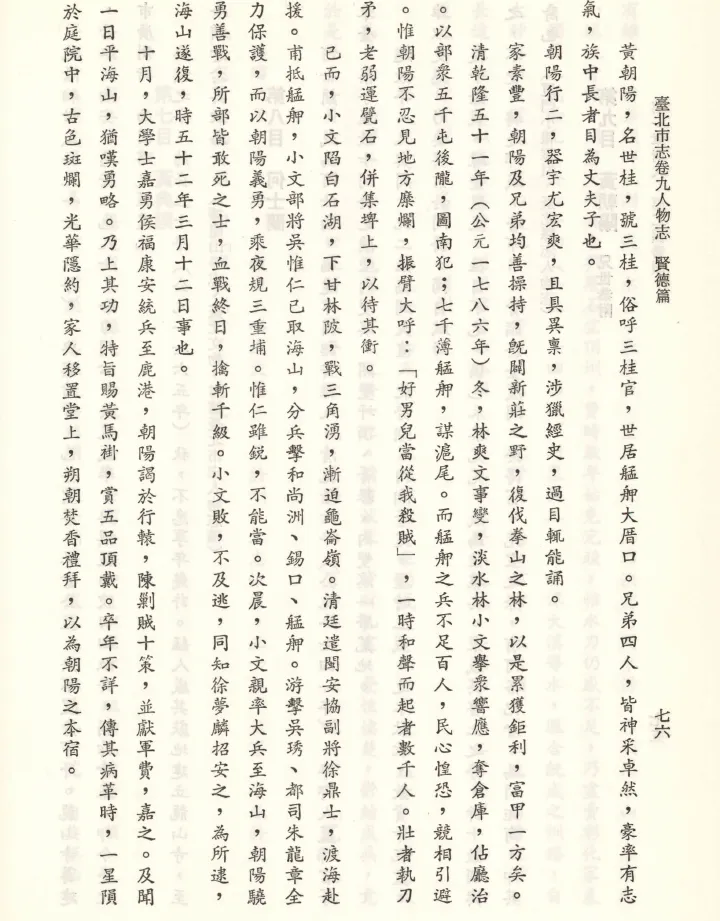 臺北市志卷九人物志　賢德篇
七六
黃朝陽，名世桂，號三桂，俗呼三桂官，世居艋舺大厝口。兄弟四人，皆神采卓然，豪率有志
氣，族中長者目為丈夫子也。
朝陽行二，器宇尤宏爽，且具異禀，涉獵經史，過目輒能誦。
家素豐，朝陽及兄弟均善操持，旣闢新莊之野，復伐拳山之林，以是累獲鉅利，富甲一方矣。
清乾隆五十一年（公元一七八六年）冬，林爽文事變，淡水林小文舉衆響應，奪倉庫，佔廳治
。以部衆五千屯後隴，圖南犯；七千薄艋舺，謀滬尾。而艋舺之兵不足百人，民心惶恐，競相引避
。惟朝陽不忍見地方糜爛，振臂大呼：「好男兒當從我殺賊」，一時和聲而起者數千人。壯者執刀
矛，老弱運甓石，併集埤上，以待其衝。
已而，小文陷白石湖，下甘林陂，戰三角湧，漸迫龜崙嶺。清廷遣閩安協副將徐鼎士，渡海赴
援。甫抵艋舺，小文部將吳惟仁已取海山，分兵擊和尚洲、錫口、艋舺。游擊吳琇、都司朱龍章全
力保護，而以朝陽義勇，乘夜規三重埔。惟仁雖銳，不能當。次晨，小文親率大兵至海山，朝陽驍
勇善戰，所部皆敢死之士，血戰終日，擒斬千級。小文敗，不及逃，同知徐夢麟招安之，為所逮，
海山遂復，時五十二年三月十二日事也。
十月，大學士嘉勇侯福康安統兵至鹿港，朝陽謁於行轅，陳剿賊十策，並獻軍費，嘉之。及聞
一日平海山，猶嘆勇略。乃上其功，特旨賜黃馬褂，賞五品頂戴。卒年不詳，傳其病革時，一星隕
於庭院中，古色斑爛，光華隱約，家人移置堂上，朔朝焚香禮拜，以為朝陽之本宿。